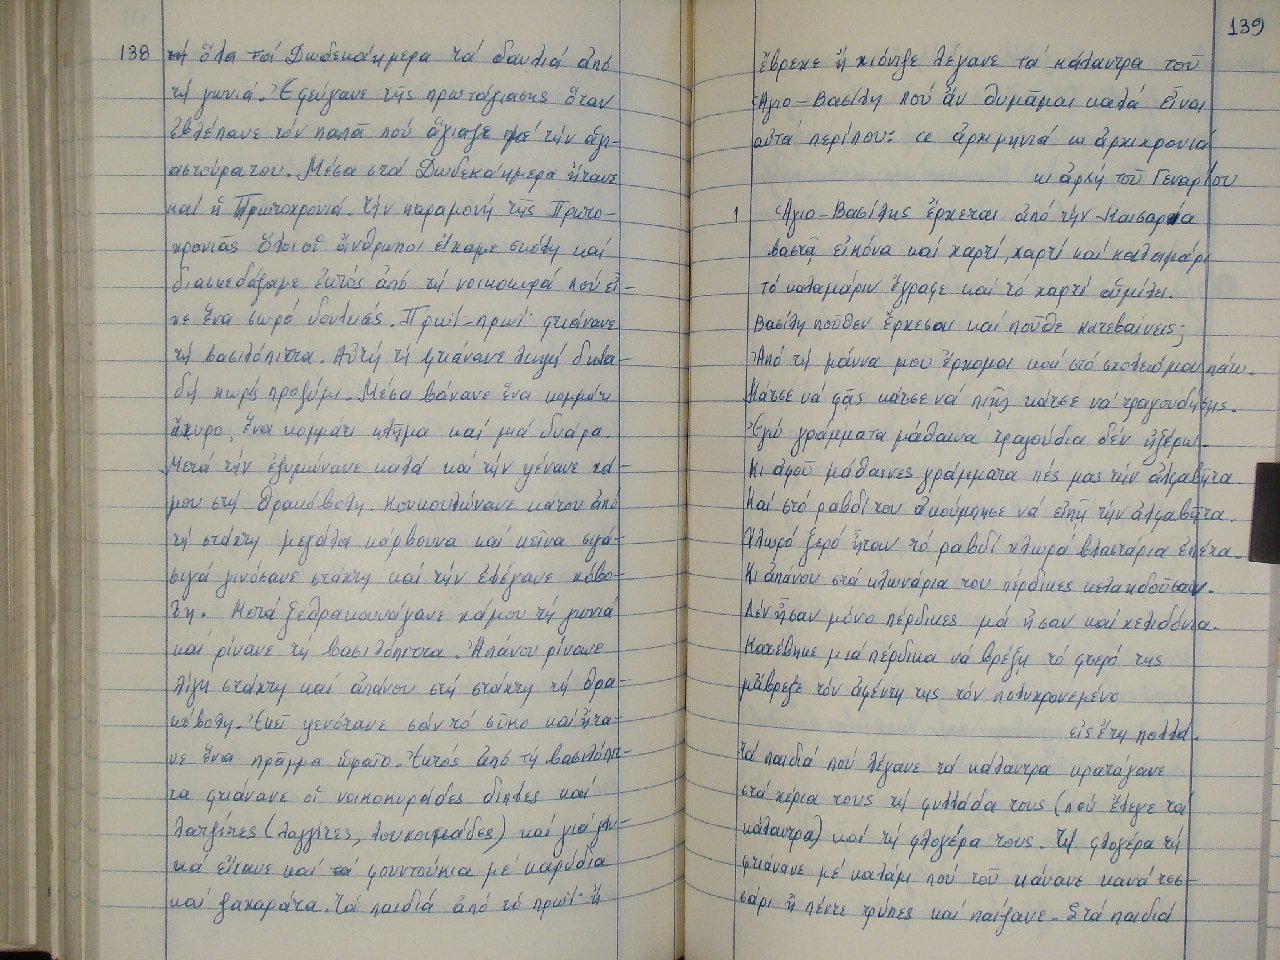 138
ὅλα τά Δωδεκάημερα τά δαυλιά ἀπό
τή γωνιά. Ἐφεύγανε τῆς πρωτάγιασης ὅταν
ἐβλέπανε τόν παπᾶ πού ἄγιαζε μέ τήν ἁγι-
αστούρα του. Μέσα στά Δωδεκάημερα ἤτανε
καί ἡ Πρωτοχρονιά. Τήν παραμονή τῆς Πρωτο-
χρονιᾶς ὅλοι οἱ ἄνθρωποι εἴχαμε σκόλη καί
διασκεδάζαμε ἐκτός ἀπό τή νοικοκυρά πού εἶ-
χε ἕνα σωρό δουλειές. Πρωί-πρωί φτιάνανε
τή βασιλόπιττα. Αὐτή τή φτιάνανε
δή χωρίς προζύμι. Μέσα βάνανε ἕνα κομμάτι
ἄχυρο, ἕνα κομμάτι κλῆμα καί μιά δυάρα.
Μετά τήν ἐζυμώνανε καλά καί τήν χά-
μου στή θρακόβολη. Κουκουλώνανε κάτου ἀπό
τή στάχτη μεγάλα κάρβουνα καί κεῖνα σιγά-
σιγά γινόσανε στάχτη καί τήν ἐλέγανε χόβο-
λη. Μετά χάμου τή γωνιά
καί ρίνανε τη βασιλόπιττα. Ἀπάνου ρίνανε
λίγη στάχτη καί ἀπάνου στή στάχτη τή θρα-
κόβολη. Ἐκεῖ γενότανε σάν τό σῦκο καί ἤτα-
νε ἕνα πρᾶγμα ὡραῖο. Ἐκτός ἀπό τή βασιλόπιτ-
τα φτιάνανε οἱ νοικοκυράδες δίπλες καί
λατζίτες (λαγγίτες, λουκουμάδες) καί γιά γλυ-
κά εἴχανε καί φουντούκια μέ καρύδια
καί ζαχαράτα. Τά παιδιά ἀπό τό πρωί ἤ
139
ἔβρεχε ἤ χιόνιζε λέγανε τά κάλαντρα τοῦ
Ἁγιο-Βασίλη πού ἄν θυμᾶμαι καλά εἶναι
αὐτά περίπου: ἀρχιμηνιά κι ἀρχιχρονιά
κι ἀρχή τοῦ Γεναρίου
1 Ἁγιο-Βασίλης ἔρχεται ἀπό τήν Καισαρεία
βαστᾶ εἰκόνα καί χαρτί, χαρτί καί καλαμάρι
τό καλαμάριν ἔγραφε καί τό χαρτί ὡμίλει.
Βασίλη ποῦθεν ἔρχεσαι καί ποῦθε κατεβαίνεις;
Ἀπό τή μάννα μου ἔρχομαι καί στό σχολειό μου πάω.
Κάτσε νά φᾶς κάτσε νά πιῆς κάτσε νά τραγουδήσης.
Ἐγώ γράμματα μάθαινα τραγούδια δέν ἠξέρω.
Κι ἀφοῦ μάθαινες γράμματα πές μας τήν ἀλφαβῆτα
Καί στό ραβδί του ἀκούμπησε νά εἰπῆ τήν ἀλφαβῆτα.
Χλωρό ξερό ἦταν τό ραβδί χλωρά βλαστάρια ἐπέτα.
Κι ἀπάνου στά κλωνάρια του πέρδικες κελαηδοῦσαν.
Δέν ἦσαν μόνο πέρδικες μά ἦσαν καί χελιδόνια.
Κατέβηκε μιά πέρδικα νά βρέξη τό φτερό της
μἄβρεξε τόν ἀφέντη της τόν πολυχρονεμένο
εἰς ἔτη πολλά.
τά παιδιά πού λέγανε τά κάλαντρα κρατάγανε
στά χέρια τους τή φυλλάδα τους (πού ἔλεγε τά
κάλαντρα) καί τή φλογέρα τους. Τή φλογέρα τή
φτιάνανε μέ καλάμι πού τοῦ κάνανε κανά τεσ-
σάρι ἤ πέντε τρύπες καί παίζανε. Στά παιδιά